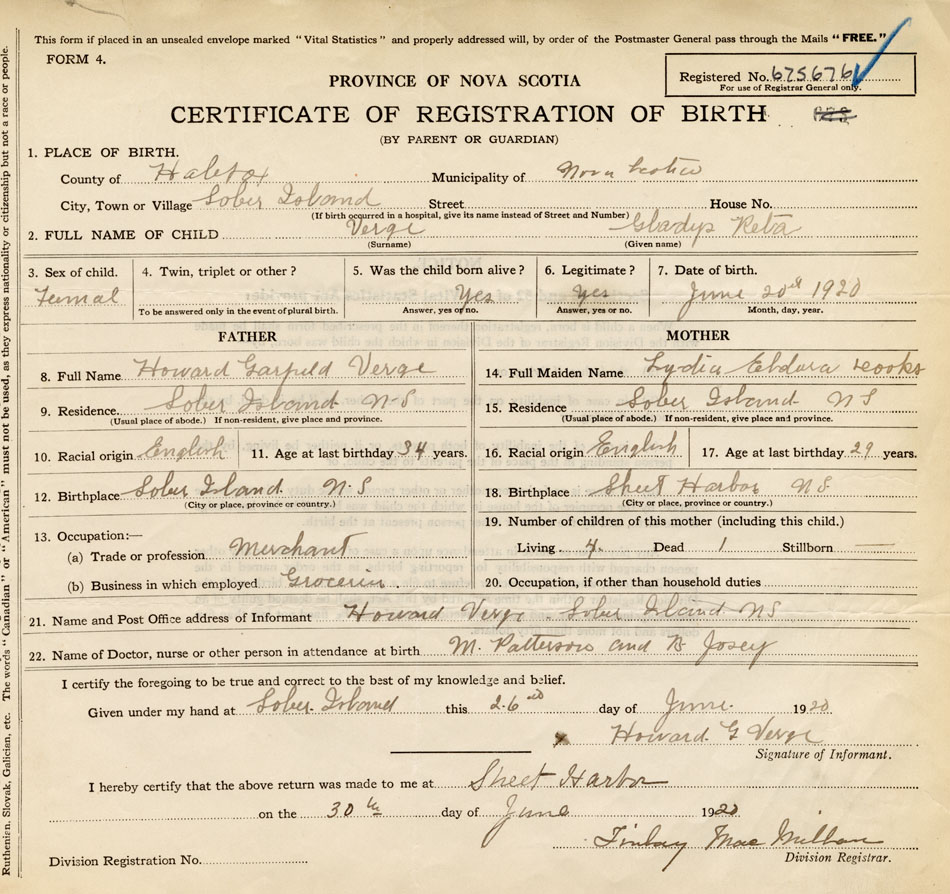 This form if placed in an unsealed envelope marked "Vital Statistics" and properly addressed will, by order of the Postmaster General pass through the Mails "FREE."
FORM 4.
Registered No. 675676
For use of Registrar General only.
PROVINCE OF NOVA SCOTIA
CERTIFICATE OF REGISTRATION OF BIRTH
(BY PARENT OR GUARDIAN)
1. PLACE OF BIRTH.
County of Halifax Municipality of Nova Scotia
City, Town or Village Sober Island Street House No.
(If birth occurred in a hospital, give its name instead of Street and Number)
2. FULL NAME OF CHILD Verge Gladys Reta
(Surname) (Given name)
3. Sex of child. 4. Twin, triplet or other? 5. Was the child born alive? 6. Legitimate? 7. Date of birth.
Femal Yes Yes June 20th 1920
To be answered only in the event of plural birth. Answer, yes or no. Answer, yes or no. Month, day, year.
FATHER
8. Full Name Howard Garfield Verge
9. Residence Sober Island N-S
(Usual place of abode.) If non-resident, give place and province.
10. Racial origin English 11. Age at last birthday 34 years.
12. Birthplace Sober Island N.S
(City or place, province or country.)
13. Occupation:—
(a) Trade or profession Merchant
(b) Business in which employed Groceries
MOTHER
14. Full Maiden Name Lydia Eldora
15. Residence Sober Island NS
(Usual place of abode.) If non-resident, give place and province.
16. Racial origin English 17. Age at last birthday 29 years.
18. Birthplace Sheet Harbor NS
(City or place, province or country.)
19. Number of children of this mother (including this child.)
Living 4 Dead 1 Stillborn —
20. Occupation, if other than household duties
21. Name and Post Office address of Informant Howard Verge. Sober Island NS
22. Name of Doctor, nurse or other person in attendance at birth M. Patterson and B Josey
I certify the foregoing to be true and correct to the best of my knowledge and belief.
Given under my hand at Sober Island this 26 day of June 1920
Howard G Verge
Signature of Informant.
I hereby certify that the above return was made to me at Sheet Harbor
on the 30th day of June 1920
Finlay MacMillan
Division Registration No. Division Registrar.
Ruthenian, Slovak, Galician, etc. The words "Canadian" or "American" must not be used, as they express nationality or citizenship but not a race or people.